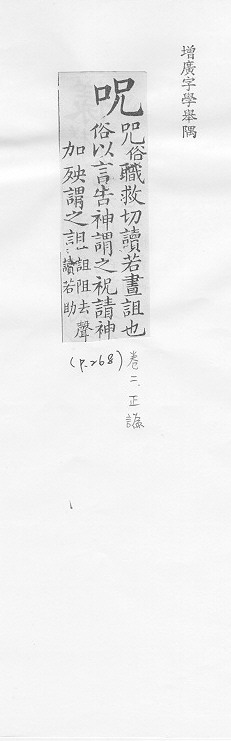 增廣字學舉隅
呪
咒俗職救切讀若晝詛也
俗以言告神謂之祝請神
加殃謂之詛詛阻去聲
讀若助
卷二、正譌
(P.268)